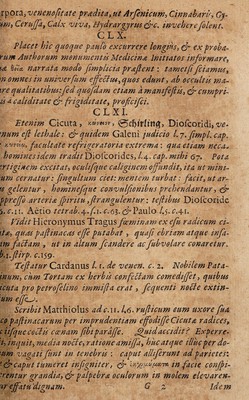 rpora, venenositate prædita, ut Arsenicum, Cinnabari, Gy-
sum, Cerussa, Calx viva, Hydrargyrus &c. invehere solent.
CLX.
Placet hic quoque paulo excurrere longius, & ex proba-
rum Authorum monumentis Medicinæ Initiatos informare,
hic narrata modo simplicia præstent: tametsi sciamus,
non omnes in universum effectus, quos edunt, ab occultis ma-
re qualitatibus; sed quosdam etiam à manifestis, & cumpri-
caliditate & frigiditate, proficisci.
CLXI.
Etenim Cicuta, Schirling, Dioscoridi, ve-
num est lethale: & quidem Galeni judicio l. 7. simpl. cap.
facultate refrigeratoria extrema: qua etiam neca-
homines idem tradit Dioscorides, l. 4. cap. mihi 67. Pota
vertiginem excitat, oculisque caliginem offundit, ita ut mini-
um cernatur: singultum ciet: mentem turbat: facit, ut ar-
gelentur, hominesque convulsionibus prehendantur, &
ppresso arteria spiritu, strangulentur: testibus Dioscoride
c. 11. Aetio tetrab. 4. s. 1. c. 63. & Paulo l. 5. c. 41.
Vidit Hieronymus Tragus fœminam ex esu radicum ci-
tæ, quas pastinacas esse putabat, quasi ebriam atque insa-
am factam, ut in altum scandere ac subvolare conaretur.
stirp. c. 159.
Testatur Cardanus l. 1. de venen. c. 2. Nobilem Pata-
num, cum Tortam ex herba confectam comedisset, quibus
cicuta pro petroselino immista erat, sequenti nocte extin-
um esse.
Scribit Matthiolus ad c. 11. l. 6. rusticum cum uxore sua
co pastinacam per imprudentiam effodisse Cicutæ radices,
iisque coctis cœnam sibi parâsse. Quid accidit? Experre-
i, inquit, media nocte, ratione amissa, huc atque illuc per do-
um vagati sunt in tenebris: caput alliserunt ad parietes:
& caput tumeret insigniter, & in facie conspi-
erentur grandia, & palpebra oculorum in molem elevaren-
ur effatu dignam. G 2 Idem